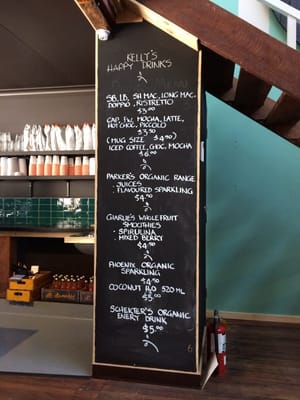 KELLY'S
HAPPY DRINKS
S.B, L.B, SH MAC, LONG MAC,
DOPPIO, RISTRETTO
$3.00
CAP, FW, MOCHA, LATTE,
HOT CHOC, PICCOLO
$3.50
(MUG SIZE $4.50)
ICED COFFEE, CHOC, MOCHA
$6.00
PARKER'S ORGANIC RANGE
- JUICES
- FLAVOURED SPARKLING
$4.50
CHARLIE'S WHOLEFRUIT
SMOOTHIES
- SPIRULINA
- MIXED BERRY
$4.50
PHOENIX ORGANIC
SPARKLING
$4.50
COCONUT H2O 520ML
$5.00
SCHEKTER'S ORGANIC
ENERY DRINK
$5.00